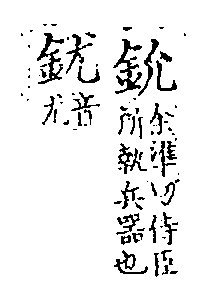 鈗
余準切侍臣
所執兵器也
音
尤